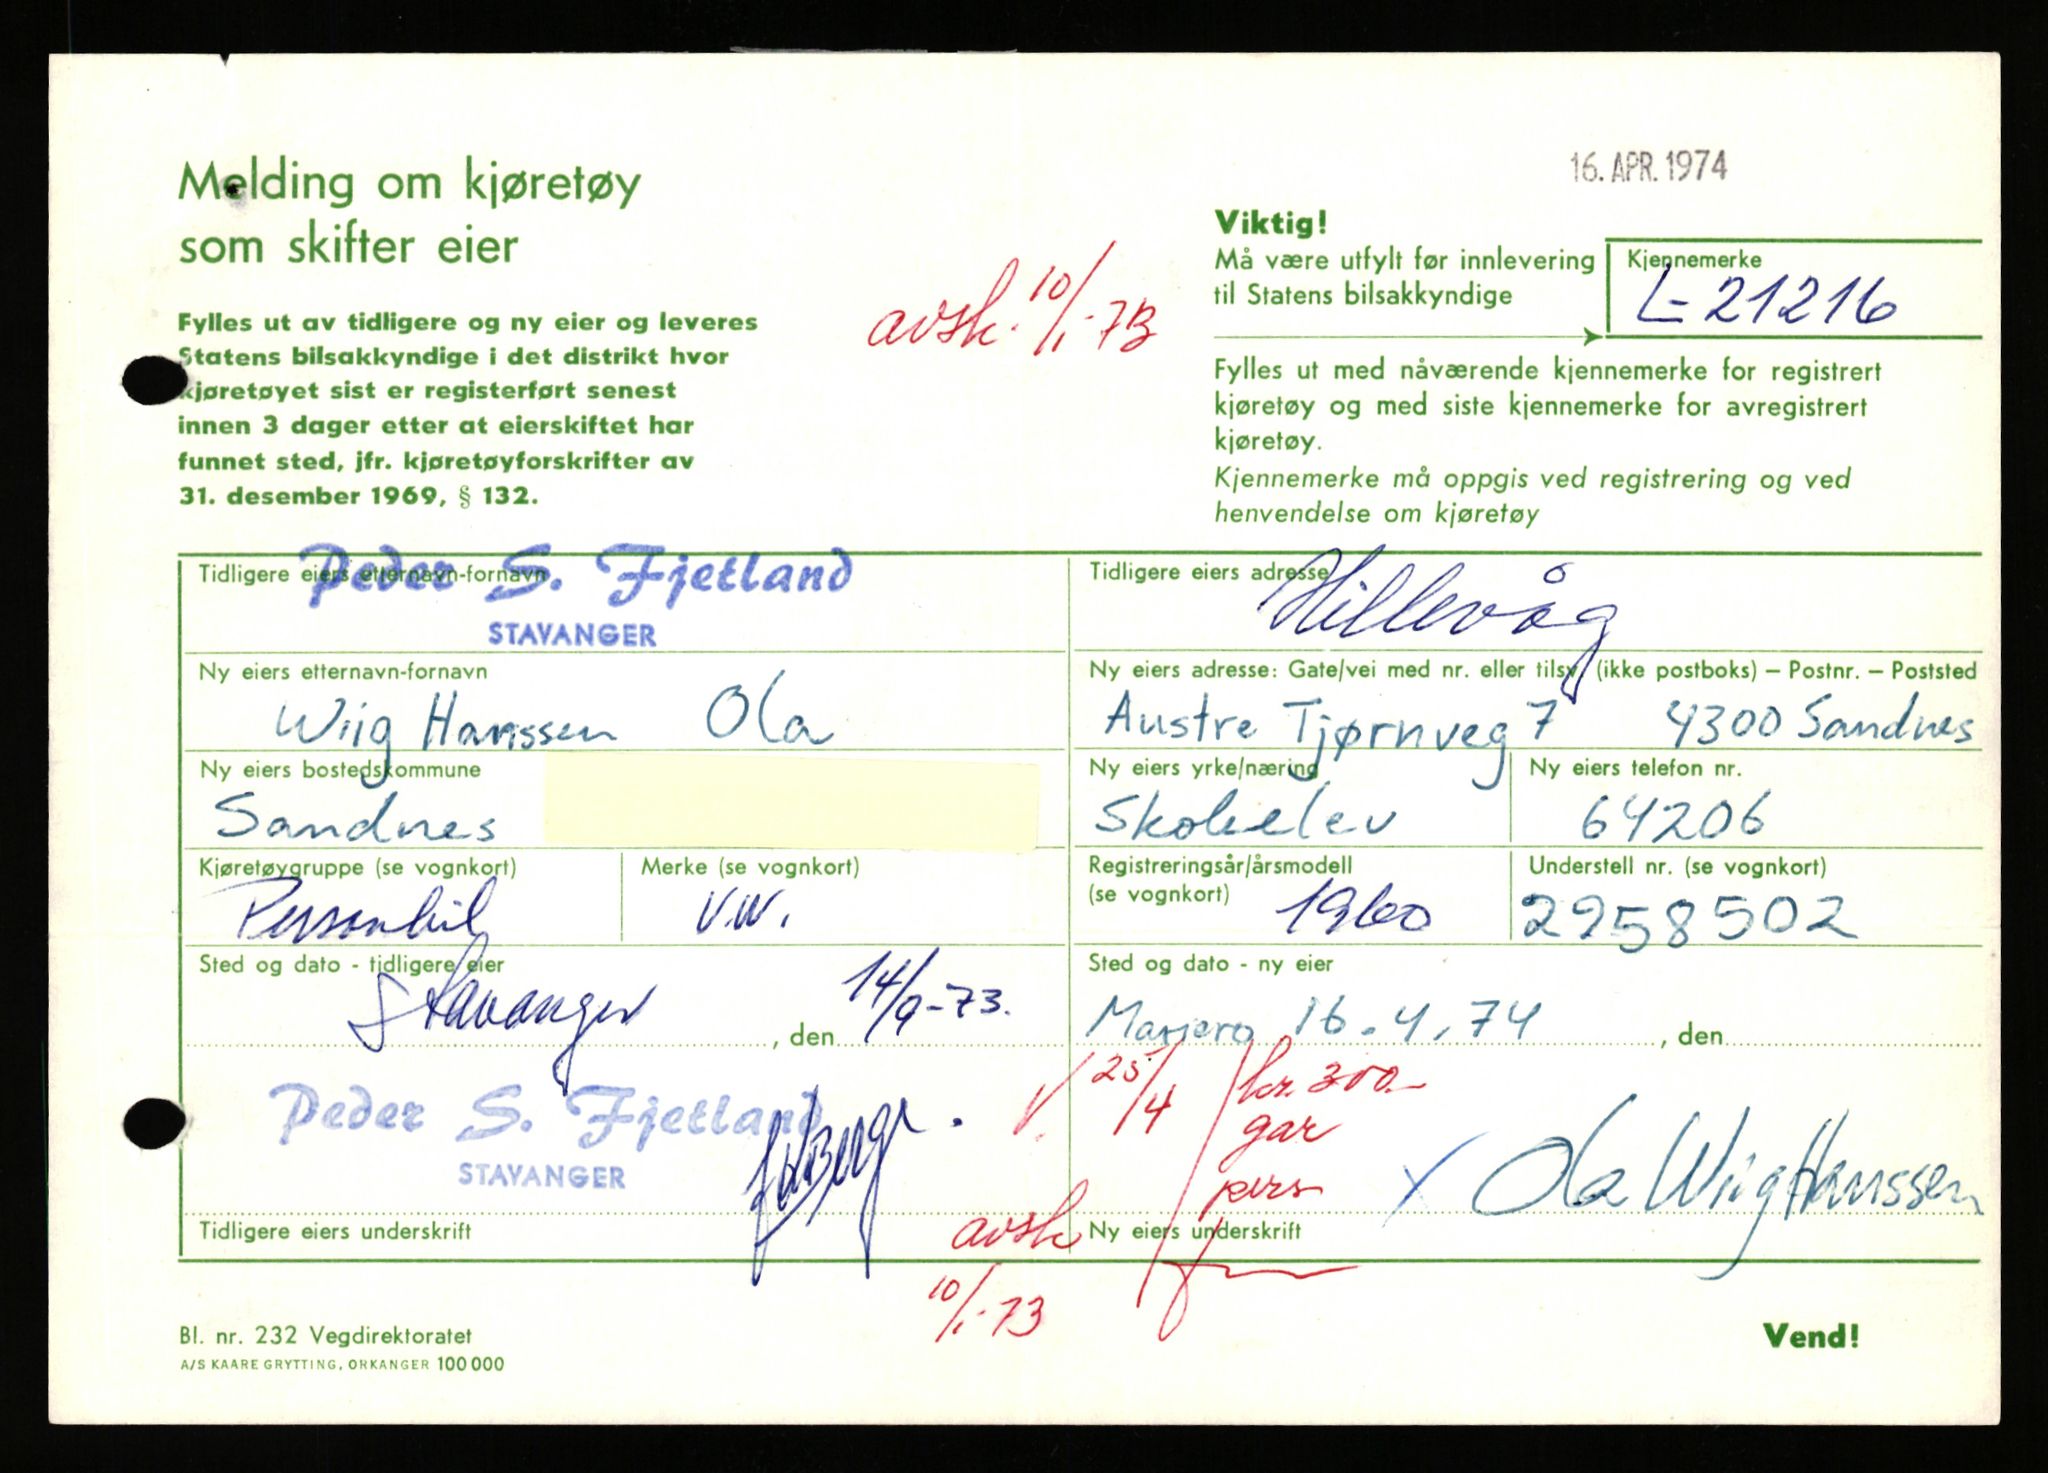 16. APR. 1974
Melding om kjøretøy
som skifter eier
Fylles ut av tidligere og ny eier og leveres
Statens bilsakkyndige i det distrikt hvor
kjøretøyet sist er registerført senest
innen 3 dager etter at eierskiftet har
funnet sted, jfr. kjøretøyforskrifter av
31. desember 1969, § 132.
avsk. 10/1-73
Viktig!
Må være utfylt før innlevering
til Statens bilsakkyndige
Kjennemerke
L-21216
Fylles ut med nåværende kjennemerke for registrert
kjøretøy og med siste kjennemerke for avregistrert
kjøretøy.
Kjennemerke må oppgis ved registrering og ved
henvendelse om kjøretøy
Tidligere eiers etternavn-fornavn
Peder S. Fjetland
STAVANGER
Tidligere eiers adresse
Hillevåg
Ny eiers etternavn-fornavn
Wiig Hanssen Ola
Ny eiers adresse: Gate/vei med nr. eller tilsv. (ikke postboks) – Postnr. – Poststed
Austre Tjørnveg 7 4300 Sandnes
Ny eiers bostedskommune
Sandnes
Ny eiers yrke/næring
Skoleelev
Ny eiers telefon nr.
64206
Kjøretøygruppe (se vognkort)
Personbil
Merke (se vognkort)
V.W.
Registreringsår/årsmodell
(se vognkort)
1960
Understell nr. (se vognkort)
2958502
Sted og dato - tidligere eier
Stavanger, den 14/9-73.
Sted og dato - ny eier
Mariero 16.4.74, den
Peder S. Fjetland
STAVANGER
V. 25/4
kr. 300.-
gar
pers
Ola Wiig Hanssen
Tidligere eiers underskrift
avsk
10/1-73
Ny eiers underskrift
Bl. nr. 232 Vegdirektoratet
A/S KAARE GRYTTING, ORKANGER 100 000
Vend!